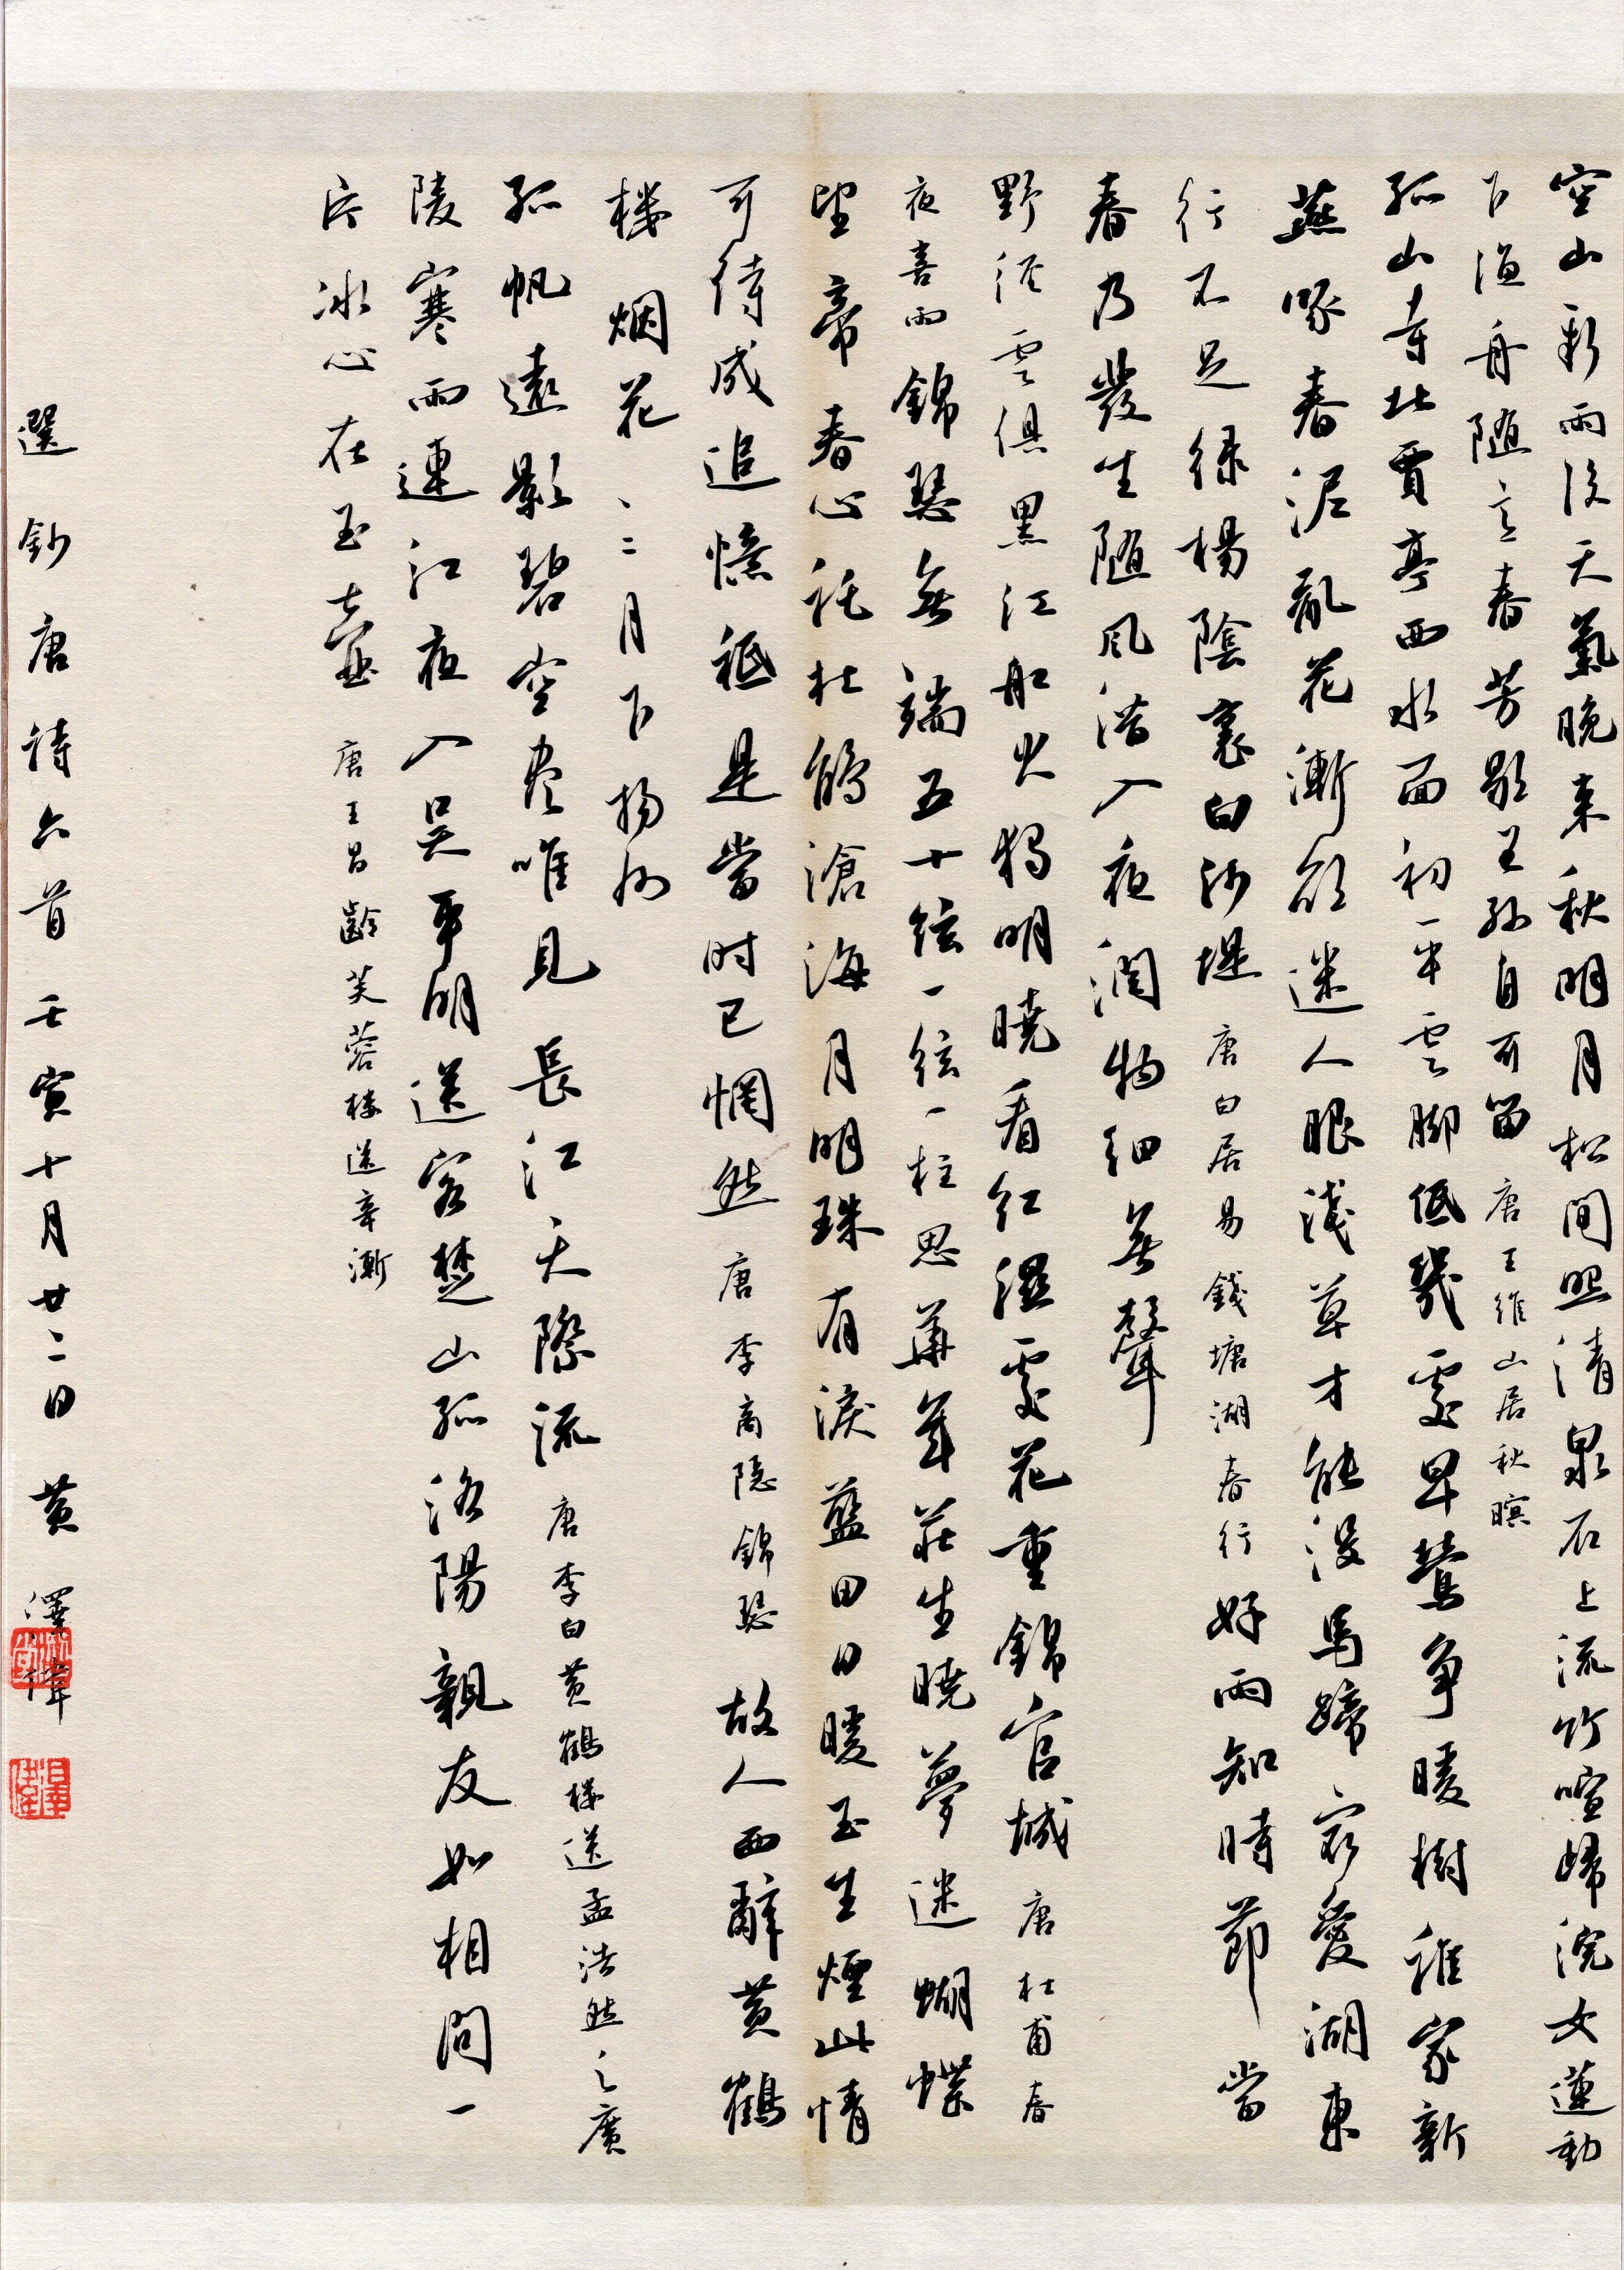 空山新雨後天氣晚來秋明月松間照清泉石上流竹喧歸浣女蓮動
下漁舟隨意春芳歇王孫自可留 唐王維山居秋暝
孤山寺北賈亭西水面初平雲腳低幾處早鶯争暖樹誰家新
燕啄春泥亂花漸欲迷人眼淺草才能沒馬蹄最愛湖東
行不足绿楊陰裏白沙堤 唐白居易錢塘湖春行 好雨知時節 當
春乃發生隨風潜入夜潤物細無聲
野徑雲俱黑江船火獨明曉看紅濕處花重錦官城 唐杜甫春
夜喜雨 錦瑟無端五十弦一弦一柱思華年莊生曉夢迷蝴蝶
望帝春心託杜鵑滄海月明珠有淚藍田日暖玉生煙此情
可待成追憶祗是當时已惘然 唐李商隱錦瑟 故人西辭黃鶴
樓 烟花三月下揚州
孤帆遠影碧空盡唯見長江天際流 唐李白黃鶴樓送孟浩然之廣
陵 寒雨連江夜入吴平明送客楚山孤洛陽親友如相問一
片冰心在玉壺 唐王昌齡芙蓉樓送辛漸
選鈔唐詩六首壬寅十月廿二日 黃澤偉
澤偉